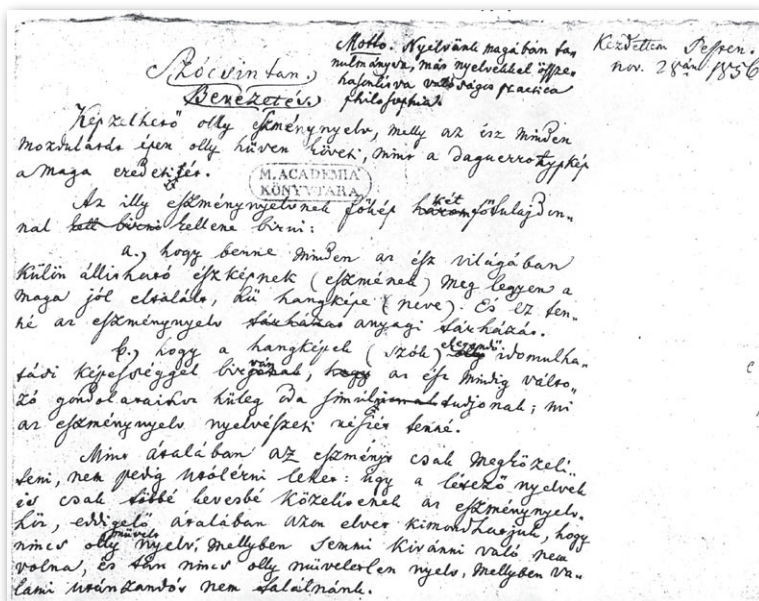 Szócsintan.
Bevezetés.
Motto. Nyelvünk magában ta-
nulmányozva, más nyelvekkel össze-
hasonlitva valóságos practica
philosophia.
Kezdettem Pesten.
nov. 28án 1856
Képzelhető olly eszménynyelv, melly az ész minden
mozdulását épen olly hiven követi, mint a daguerrotypkép
a maga eredetijét.
M. ACADEMIA
KÖNYVTARA
Az illy eszménynyelvnek főkép három két főtulajdon-
nal kell birni kellene birni:
a., hogy benne minden az ész világában
külön állitható észképnek (eszmének) meg legyen a
maga jól eltalált, hű hangképe (neve). És ez ten-
né az eszménynyelv tárházas anyagi tárházát.
b., hogy a hangképek (szók) elegendő olly idomulha-
tási képességgel birjanak, hogy az ész mindig válto-
zó gondolataihoz hűleg oda simulni tudjanak; mi
az eszménynyelv nyelvészeti részét tenné.
Mint átalában az eszményt csak megközeli-
teni, nem pedig utólérni lehet: úgy a létező nyelvek
is csak többé kevesbé közelitenek az eszménynyelv-
hez, eddigelő átalában azon elvet kimondhatjuk, hogy
nincs olly művelt nyelv, mellyben semmi kivánni való nem
volna, és tán nincs olly műveletlen nyelv, mellyben va-
lami utánzandót nem találnánk.